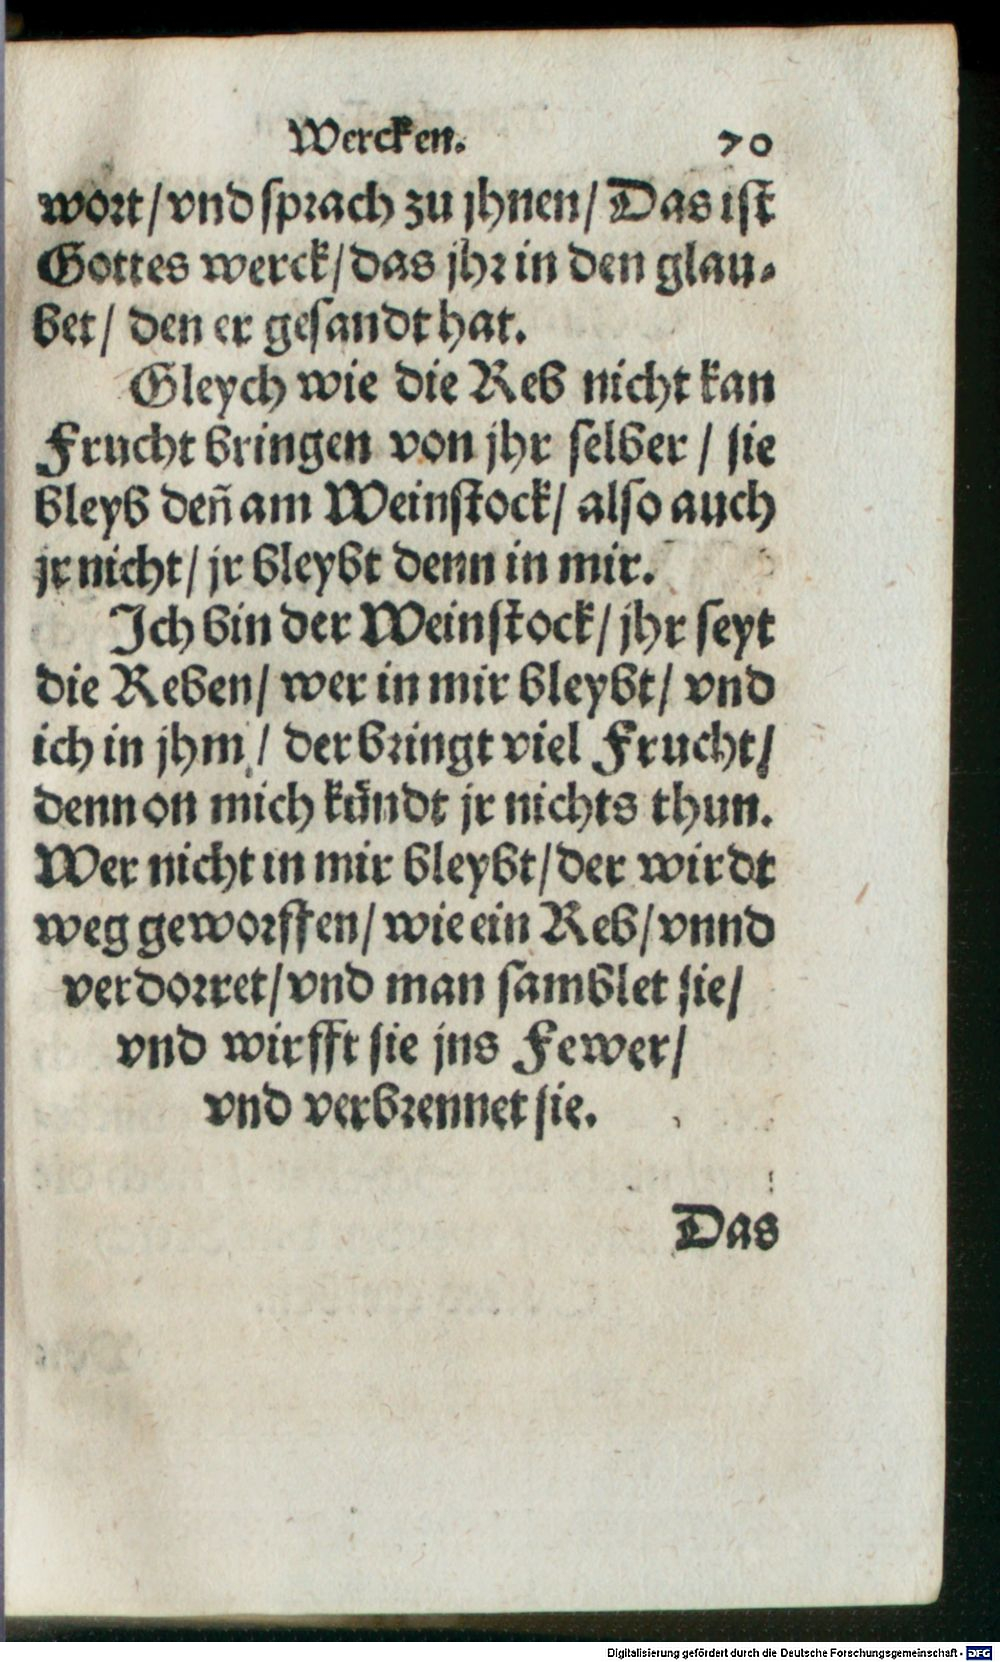 Wercken. 70
wort/ vnd sprach zu jhnen/ Das ist
Gottes werck/ das jhr in den glau-
bet/ den er gesandt hat.
Gleych wie die Reb nicht kan
Frucht bringen von jhr selber / sie
bleyb den̄ am Weinstock/ also auch
jr nicht/ jr bleybt denn in mir.
Ich bin der Weinstock/ jhr seyt
die Reben/ wer in mir bleybt/ vnd
ich in jhm / der bringt viel Frucht/
denn on mich kündt jr nichts thun.
Wer nicht in mir bleybt/ der wirdt
weg geworffen/ wie ein Reb/ vnnd
verdorret/ vnd man samblet sie/
vnd wirfft sie jns Fewer/
vnd verbrennet sie.
Das
Digitalisierung gefördert durch die Deutsche Forschungsgemeinschaft - DFG